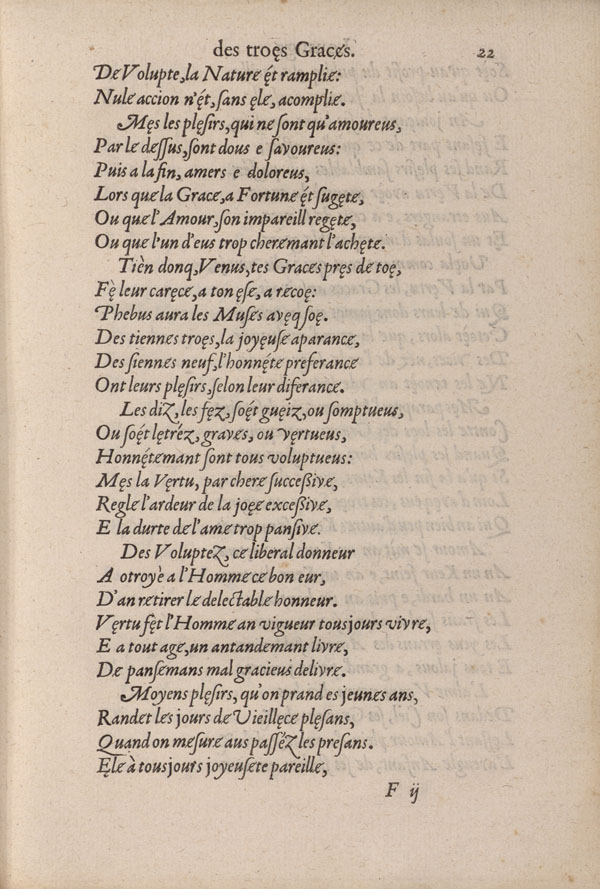 des troęs Graces. 22
De Volupte, la Nature ę́t ramplie:
Nule accion n'ę́t, sans ęle, acomplie.
Męs les plęsirs, qui ne sont qu'amoureus,
Par le dessus, sont dous e savoureus:
Puis a la fin, amers e doloreus,
Lors que la Grace, a Fortune ę́t sugęte,
Ou que l'Amour, son impareill regęte,
Ou que l'un d'eus trop cheremant l'achęte.
Tièn donq, Venus, tes Graces pręs de toę,
Fę leur caręce, a ton ęse, a recoę:
Phebus aura les Muses avęq soę.
Des tiennes troęs, la joyęuse aparance,
Des siennes neuf, l'honnę́te preferance
Ont leurs plęsirs, selon leur diferance.
Les diz, les fęz, soę́t guęiz, ou somptueus,
Ou soę́t lętréz, graves, ou vęrtueus,
Honnę́temant sont tous voluptueus:
Męs la Vęrtu, par chere successive,
Regle l'ardeur de la joęe excessive,
E la durte de l'ame trop pansive.
Des Voluptez, ce liberal donneur
A otroyè a l'Homme ce bon eur,
D'an retirer le delectable honneur.
Vęrtu fęt l'Homme an vigueur tousjours vivre,
E a tout age, un antandemant livre,
De pansemans mal gracieus delivre.
Moyens plęsirs, qu'on prand es jeunes ans,
Randet les jours de Vieillęce plęsans,
Quand on mesure aus passéz les presans.
Ęle à tousjours joyeusete pareille,
F ij